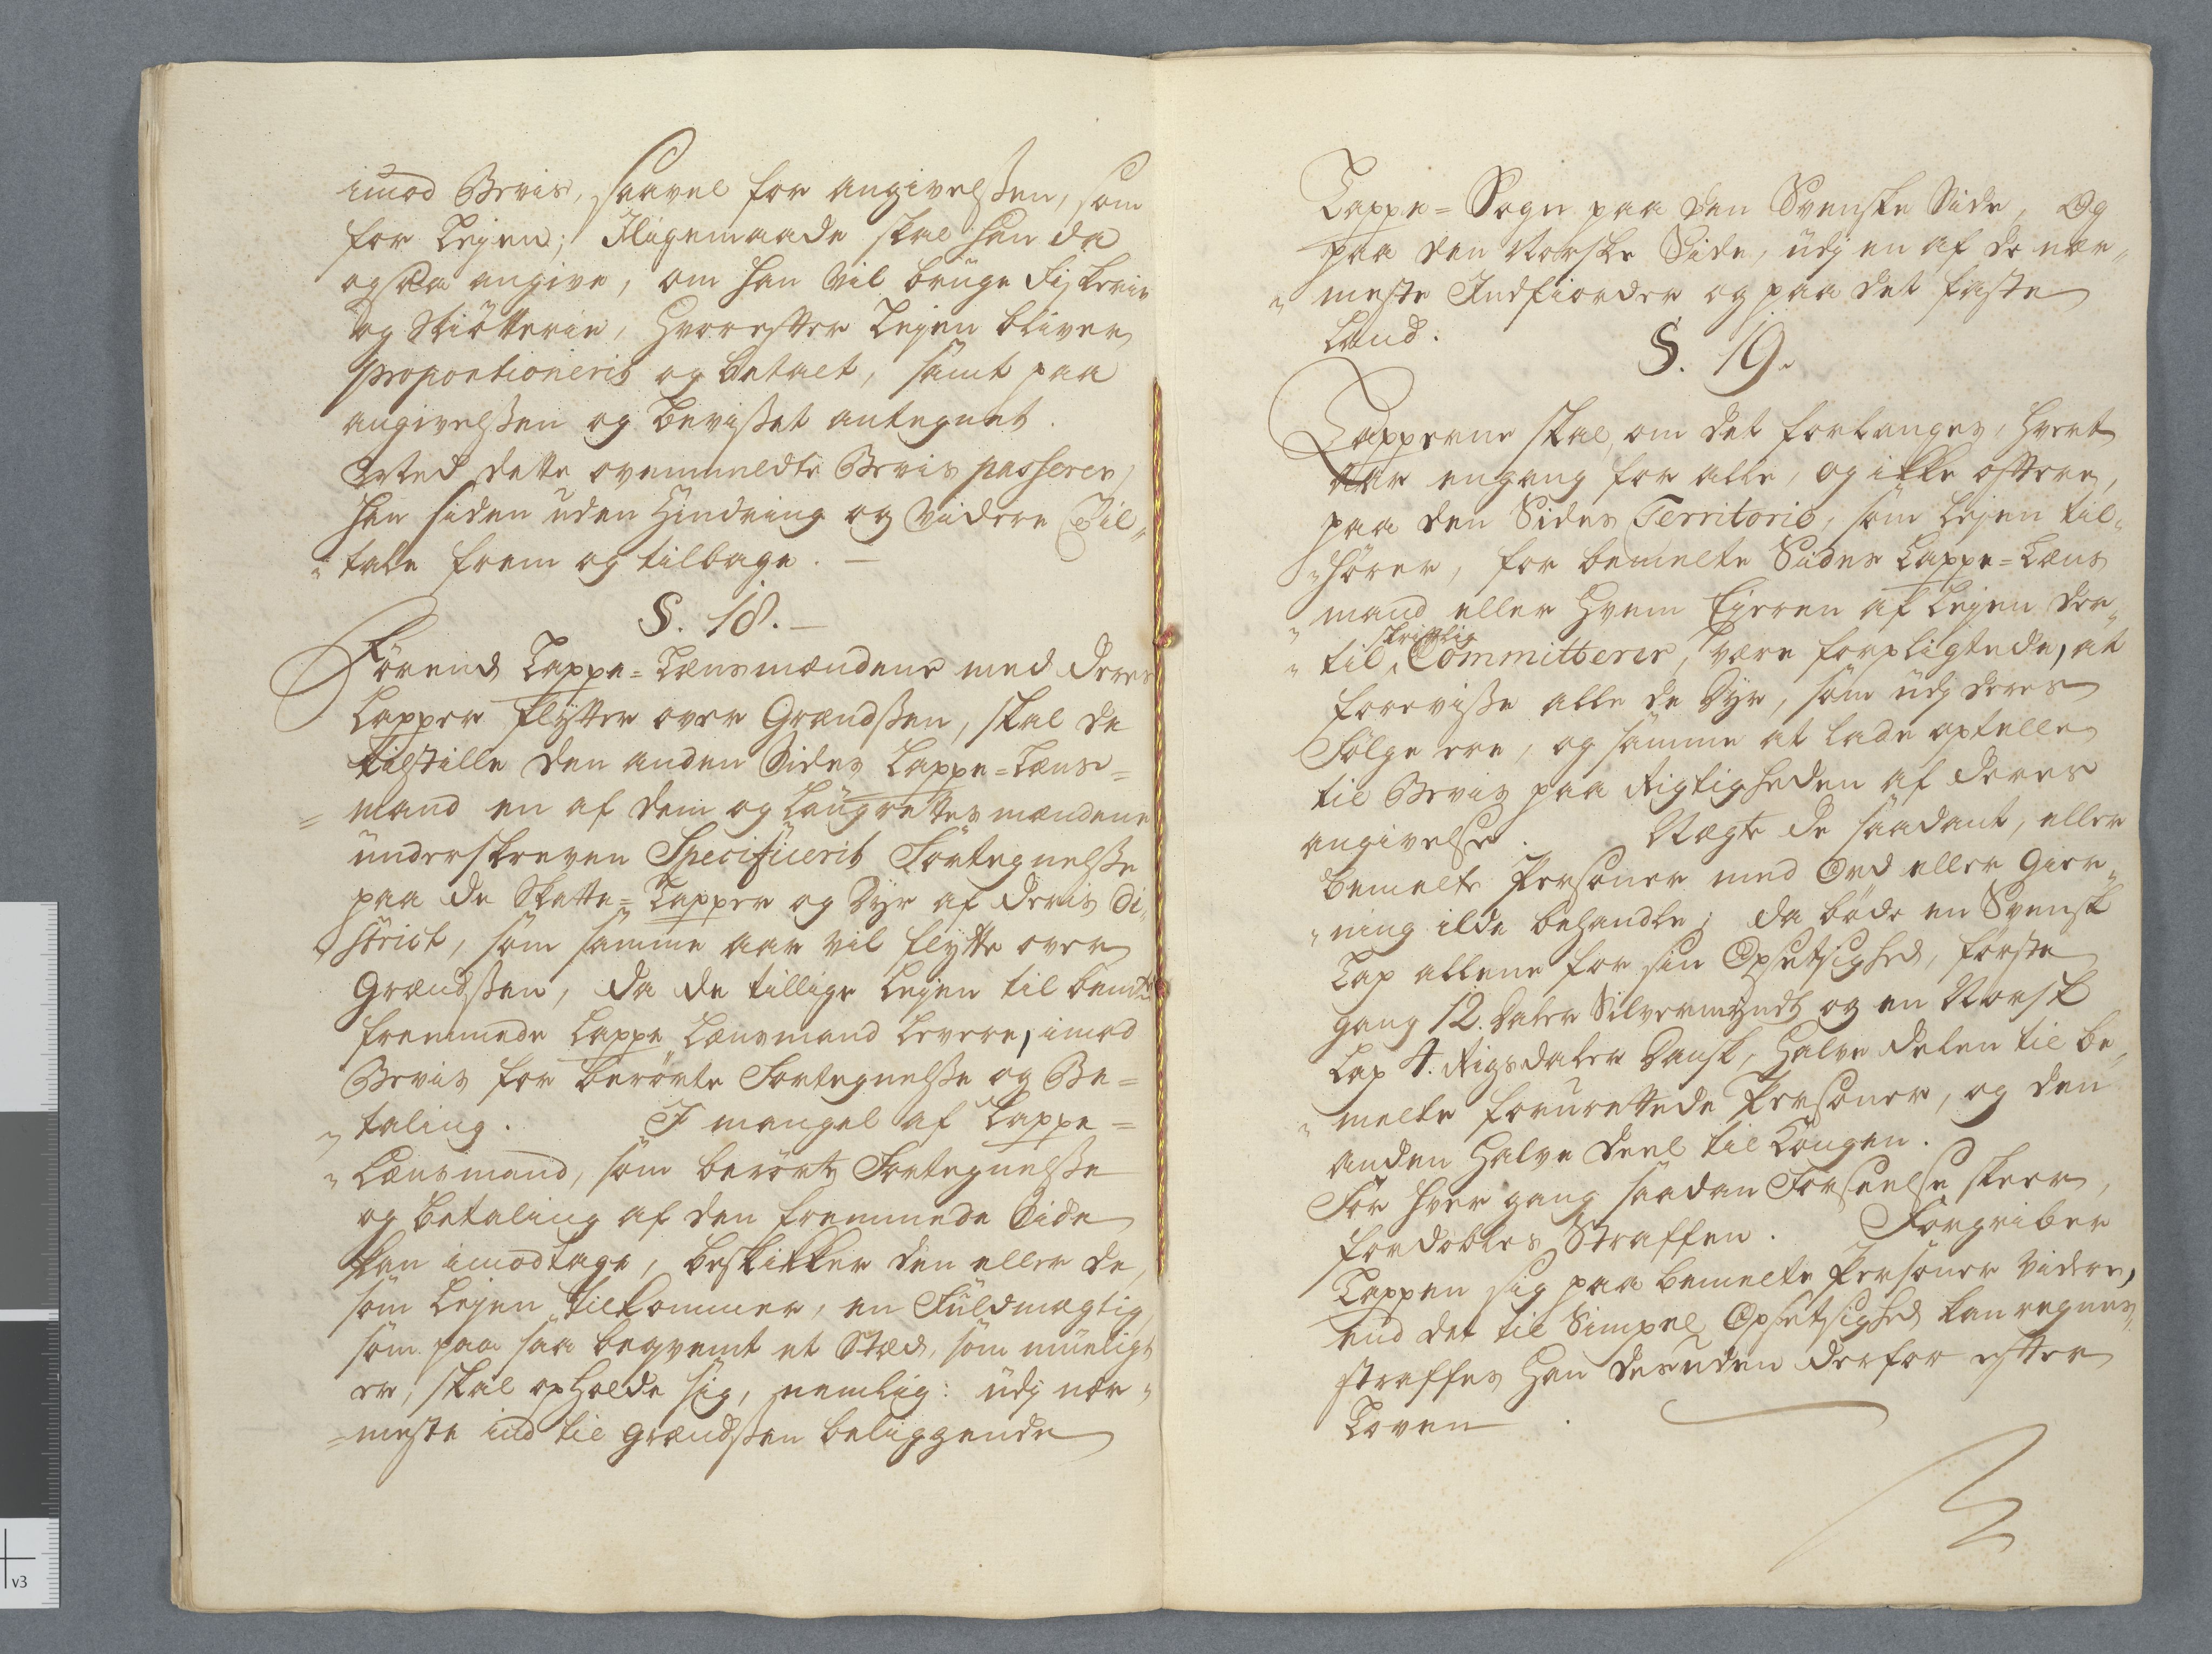 imod Bevis, saavel for angivelsßen, som
for Lejen; Iligemaade skal han da
ogsaa angive, om han vil brüge Fiskerie
og Skiötterie, hvorefter Lejen bliver
proportionerit og betalt, samt paa
angivelsßen og Bevisßet antegnet.
Med dette ovenmeldte Bevis passerer
han siden uden Hindring og videre Til„
„tale frem og tilbage. —
§. 18. —
Förend Lappe=Lænsmændene med deres
Lapper flÿtter over Grændsßen, skal de
tilstille den anden Sides Lappe=Læns=
=mand en af dem og Laugrettesmændene
underskreven Specificerit Fortegnelsße
paa de Skatte=Lapper og Dÿr af deris Di„
„strict, som samme aar vil flÿtte over
Grændsßen, da de tillige Lejen til bemte
fremmede Lappe Lænsmand levere, imod
Bevis for berörte Fortegnelsße og Be=
„taling. I mangel af Lappe=
„Lænsmand, som berörte Fortegnelsße
og betaling af den fremmede Side
kan imodtage, beskikker den eller de,
som Lejen tilkommer, en Fuldmægtig,
som paa saa beqvemt et Stæd, som müeligt
er, skal opholde sig, nemlig: udj nær„
=meste ind til grændsßen beliggende
Lappe=Sogn paa den Svenske Side, Og
paa den Norske Side, udj en af de nær„
„meste Indfiorder og paa det faste
Land.
§. 19.
Lapperne skal, om det forlanges, hvert
aar engang for alle, og ikke oftere,
paa den Sides Territorio, som Lejen til„
„hörer, for bemelte Sides Lappe=Læns
„mand eller hvem Ejeren af Lejen der„
skriftlig
„til Committerer, være forpligtede, at
forevisße alle de Dÿr, som udj deres
Fölge ere, og samme at lade optelle
til Bevis paa Rigtigheden af deres
angivelse. Nægte de saadant, eller
bemelte Personer med Ord eller Gier„
„ning ilde behandle; da böde en Svensk
Lap allene for sin Opsetsighed, förste
gang 12. Daler Silvermyndt og en Norsk
Lap 4. Rigsdaler Dansk, halve delen til be„
„melte forurettede Personer, og den
anden halve Deel til Kongen.
For hver gang saadan Forseelse skeer,
fordobles Straffen. Forgriber
Lappen sig paa bemelte Personer videre,
end det til Simpel Opsetsighed kan regnes,
straffes han desuden derfor efter
Loven.